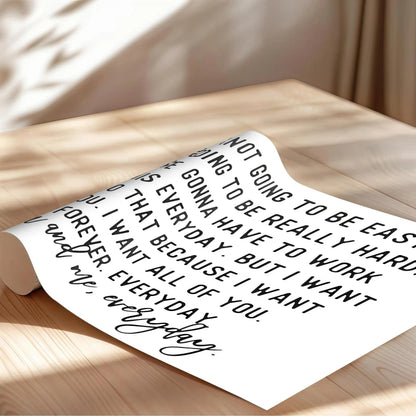 NOT GOING TO BE EASY
GOING TO BE REALLY HARD
GONNA HAVE TO WORK
EVERYDAY. BUT I WANT
TO THAT BECAUSE I WANT
YOU. I WANT ALL OF YOU.
FOREVER. EVERYDAY.
and me, everyday.